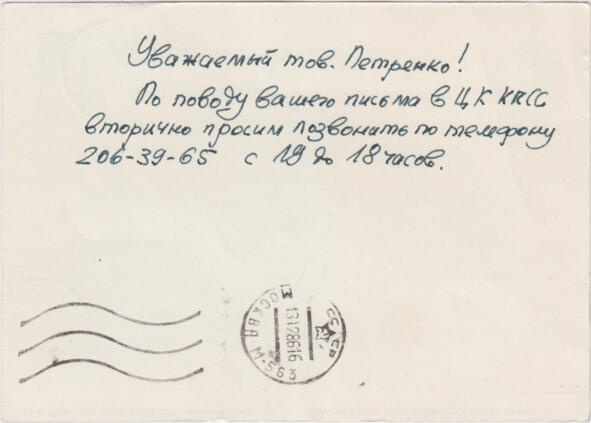 Уважаемый тов. Петренко!
По поводу вашего письма в ЦК КПСС
вторично просим позвонить по телефону
206-39-65 с 19 до 18 часов.
СССР
МОСКВА М-563